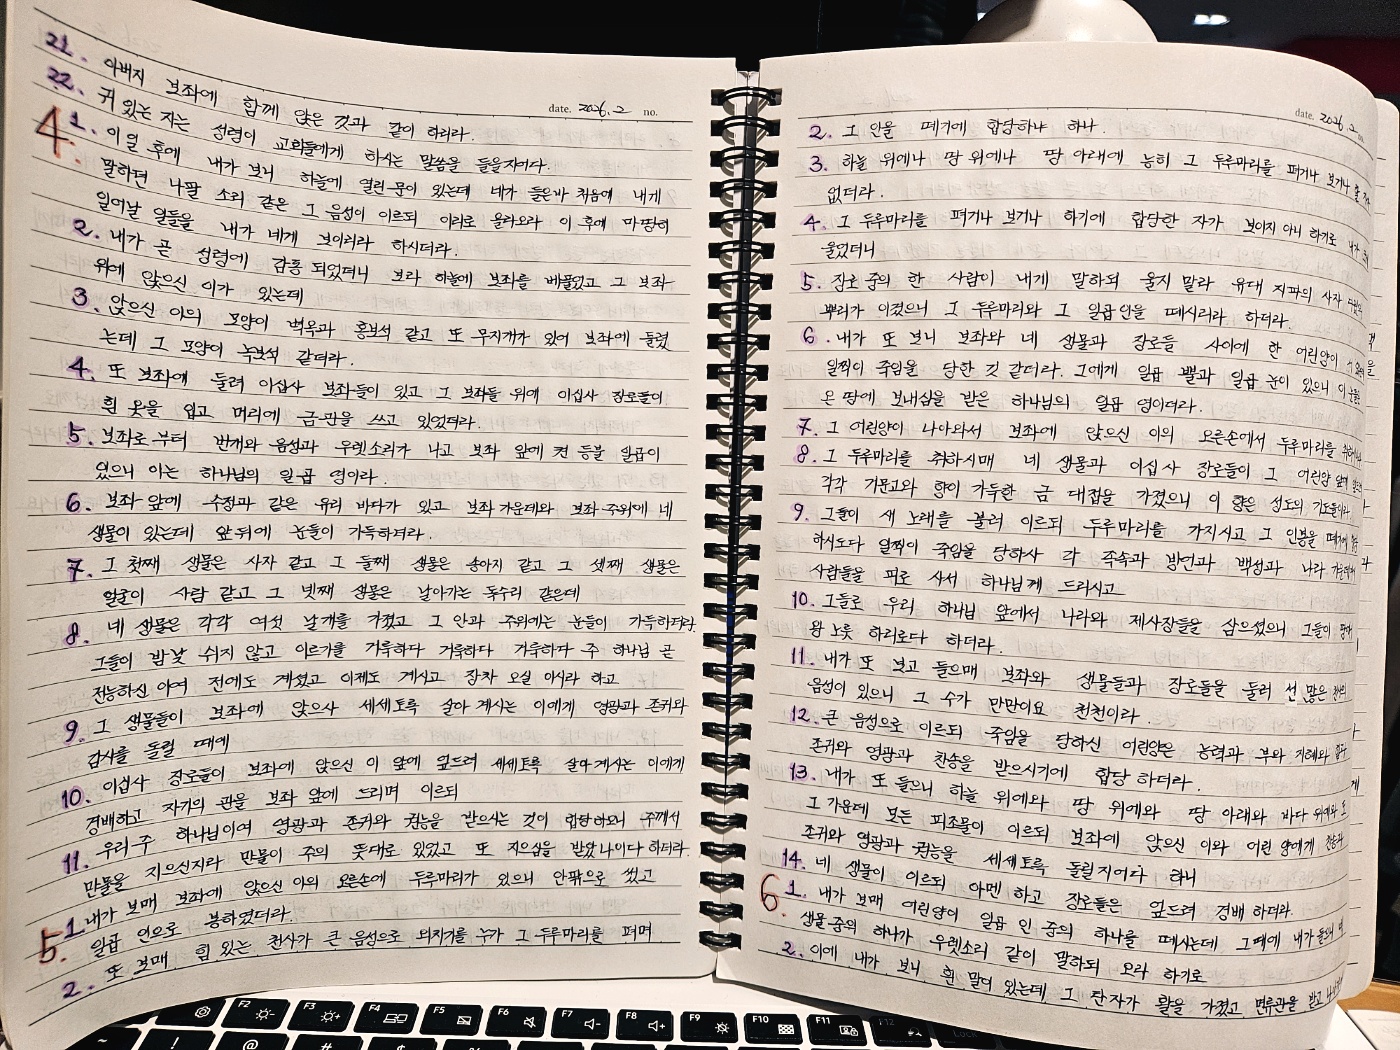 date. 2026. 2 no.
21. 아버지 보좌에 함께 앉은 것과 같이 하리라.
22. 귀 있는 자는 성령이 교회들에게 하시는 말씀을 들을지어다.
4. 1. 이 일 후에 내가 보니 하늘에 열린 문이 있는데 내가 들은바 처음에 내게
말하던 나팔 소리 같은 그 음성이 이르되 이리로 올라오라 이 후에 마땅히
일어날 일들을 내가 네게 보이리라 하시더라.
2. 내가 곧 성령에 감동 되었더니 보라 하늘에 보좌를 베풀었고 그 보좌
위에 앉으신 이가 있는데
3. 앉으신 이의 모양이 벽옥과 홍보석 같고 또 무지개가 있어 보좌에 둘렸
는데 그 모양이 녹보석 같더라.
4. 또 보좌에 둘려 이십사 보좌들이 있고 그 보좌들 위에 이십사 장로들이
흰 옷을 입고 머리에 금관을 쓰고 있었더라.
5. 보좌로부터 번개와 음성과 우렛소리가 나고 보좌 앞에 켠 등불 일곱이
있으니 이는 하나님의 일곱 영이라.
6. 보좌 앞에 수정과 같은 유리 바다가 있고 보좌 가운데와 보좌 주위에 네
생물이 있는데 앞뒤에 눈들이 가득하더라.
7. 그 첫째 생물은 사자 같고 그 둘째 생물은 송아지 같고 그 셋째 생물은
얼굴이 사람 같고 그 넷째 생물은 날아가는 독수리 같은데
8. 네 생물은 각각 여섯 날개를 가졌고 그 안과 주위에는 눈들이 가득하더라.
그들이 밤낮 쉬지 않고 이르기를 거룩하다 거룩하다 거룩하다 주 하나님 곧
전능하신 이여 전에도 계셨고 이제도 계시고 장차 오실 이시라 하고
9. 그 생물들이 보좌에 앉으사 세세토록 살아 계시는 이에게 영광과 존귀와
감사를 돌릴 때에
10. 이십사 장로들이 보좌에 앉으신 이 앞에 엎드려 세세토록 살아 계시는 이에게
경배하고 자기의 관을 보좌 앞에 드리며 이르되
11. 우리 주 하나님이여 영광과 존귀와 권능을 받으시는 것이 합당하오니 주께서
만물을 지으신지라 만물이 주의 뜻대로 있었고 또 지으심을 받았나이다 하더라.
5. 1. 내가 보매 보좌에 앉으신 이의 오른손에 두루마리가 있으니 안팎으로 썼고
일곱 인으로 봉하였더라.
2. 또 보매 힘 있는 천사가 큰 음성으로 외치기를 누가 그 두루마리를 펴며
date. 2026. 2 no.
2. 그 인을 떼기에 합당하냐 하나.
3. 하늘 위에나 땅 위에나 땅 아래에 능히 그 두루마리를 펴거나 보거나 할
없더라.
4. 그 두루마리를 펴거나 보거나 하기에 합당한 자가 보이지 아니 하기로 내가
울었더니
5. 장로 중의 한 사람이 내게 말하되 울지 말라 유대 지파의 사자
뿌리가 이겼으니 그 두루마리와 그 일곱 인을 떼시리라 하더라.
6. 내가 또 보니 보좌와 네 생물과 장로들 사이에 한 어린양이
일찍이 죽임을 당한 것 같더라. 그에게 일곱 뿔과 일곱 눈이 있으니 이 눈들은
온 땅에 보내심을 받은 하나님의 일곱 영이더라.
7. 그 어린양이 나아와서 보좌에 앉으신 이의 오른손에서 두루마리를
8. 그 두루마리를 취하시매 네 생물과 이십사 장로들이 그 어린양 앞에
각각 거문고와 향이 가득한 금 대접을 가졌으니 이 향은 성도의 기도들이라
9. 그들이 새 노래를 불러 이르되 두루마리를 가지시고 그 인봉을 떼기에
하시도다 일찍이 죽임을 당하사 각 족속과 방언과 백성과 나라 가운데에서
사람들을 피로 사서 하나님께 드리시고
10. 그들로 우리 하나님 앞에서 나라와 제사장들을 삼으셨으니 그들이 땅에서
왕 노릇 하리로다 하더라.
11. 내가 또 보고 들으매 보좌와 생물들과 장로들을 둘러 선 많은 천사의
음성이 있으니 그 수가 만만이요 천천이라.
12. 큰 음성으로 이르되 죽임을 당하신 어린양은 능력과 부와 지혜와 힘과
존귀와 영광과 찬송을 받으시기에 합당 하더라.
13. 내가 또 들으니 하늘 위에와 땅 위에와 땅 아래와 바다 위에와 또
그 가운데 모든 피조물이 이르되 보좌에 앉으신 이와 어린 양에게 찬송과
존귀와 영광과 권능을 세세토록 돌릴지어다 하니
14. 네 생물이 이르되 아멘 하고 장로들은 엎드려 경배 하더라.
6. 1. 내가 보매 어린양이 일곱 인 중의 하나를 떼시는데 그때에 내가 들으니 네
생물 중의 하나가 우렛소리 같이 말하되 오라 하기로
2. 이에 내가 보니 흰 말이 있는데 그 탄 자가 활을 가졌고 면류관을 받고
F2
F3
F4
F5
F6
F7
F8
F9
F10
F11
F12
~
!
@
#
$
Lock